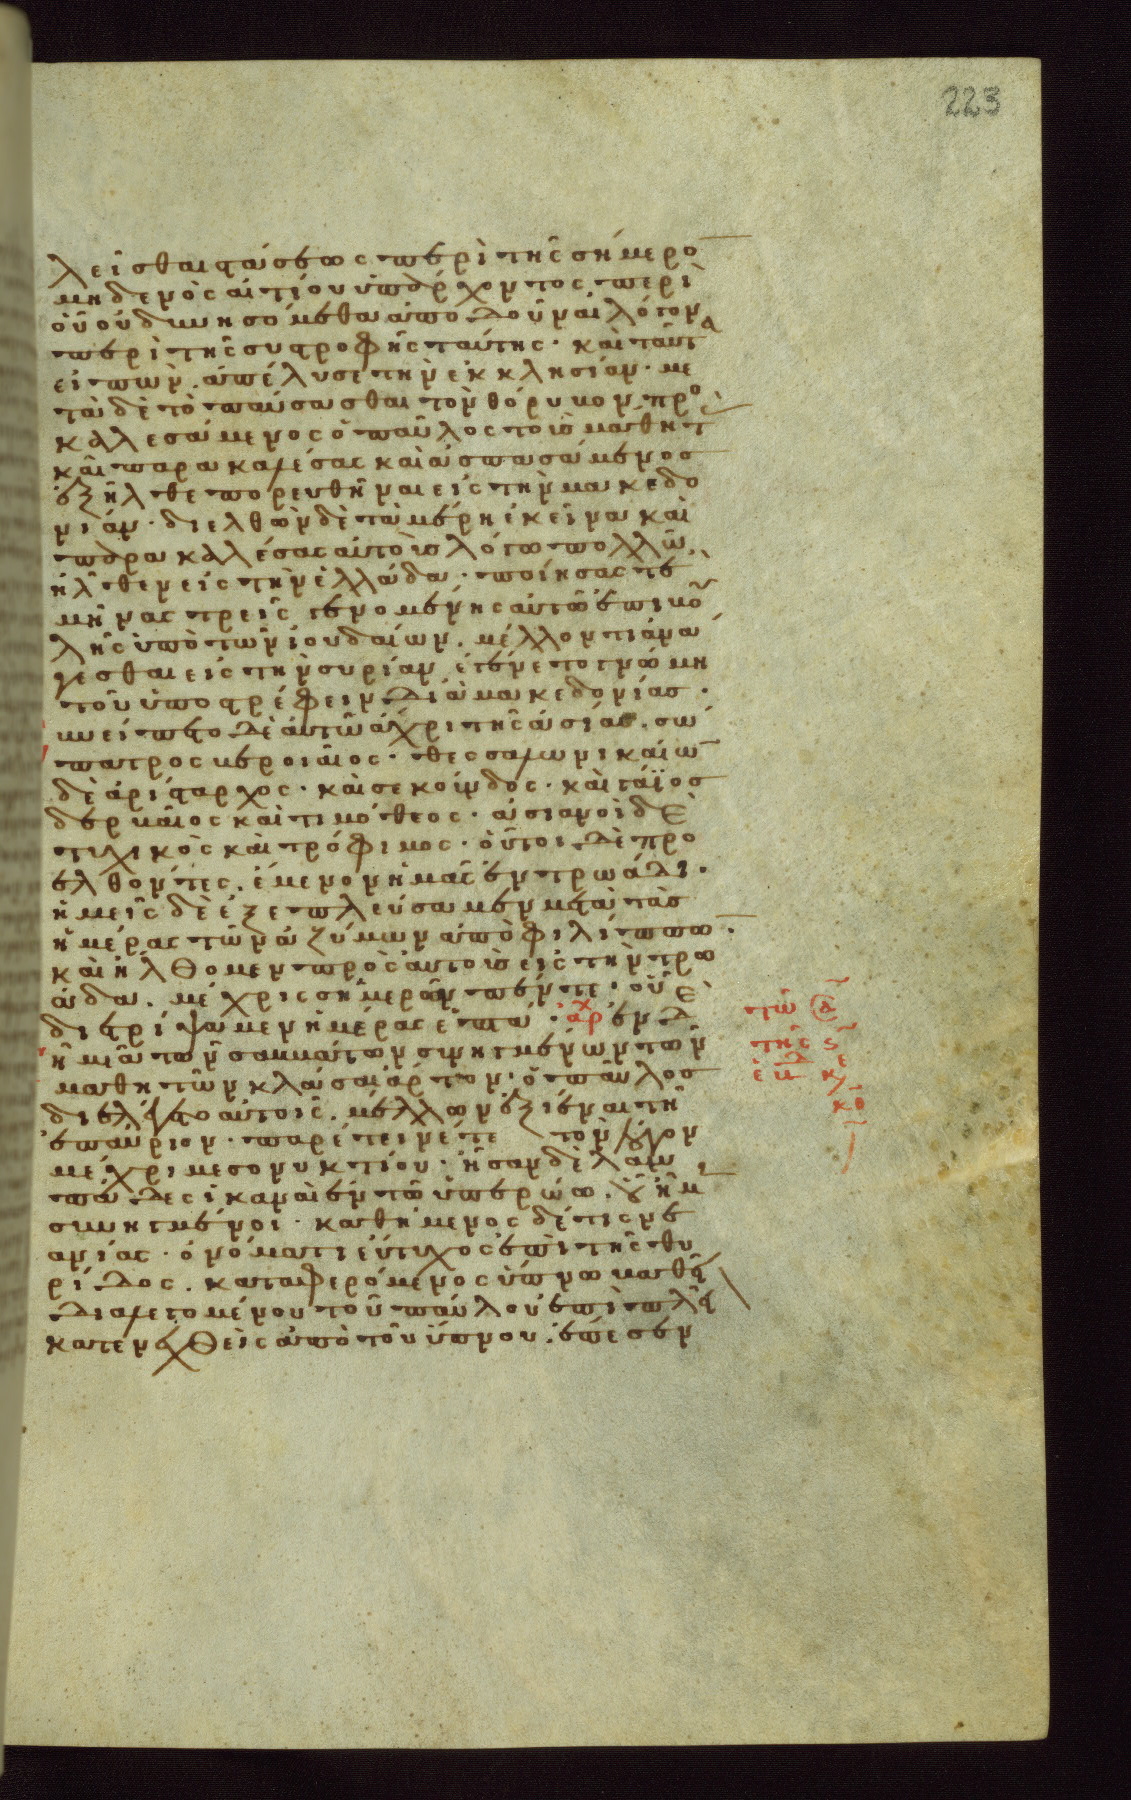 223
λεῖσθαι στάσεως περὶ τῆς σήμερο
μηδενὸς αἰτίου ὑπάρχοντος περὶ
οὗ οὐ δυνησόμεθα ἀποδοῦναι λόγον
περὶ τῆς συστροφῆς ταύτης· καὶ ταῦτα
εἰπὼν, ἀπέλυσε τὴν ἐκκλησίαν· με
τὰ δὲ τὸ παύσασθαι τὸν θόρυβον, προσ
καλεσάμενος ὁ παῦλος τοὺς μαθητ
καὶ παρακαλέσας καὶ ἀσπασάμενος
ἐξῆλθε πορευθῆναι εἰς τὴν μακεδο
νίαν· διελθὼν δὲ τὰ μέρη ἐκεῖνα καὶ
παρακαλέσας αὐτοὺς λόγω πολλῶ,
ἦλθεν εἰς τὴν ἑλλάδα· ποιήσας τε
μῆνας τρεῖς γενομένης αὐτῶ ἐπιβου
λῆς ὑπὸ τῶν ἰουδαίων, μέλλοντι ἀνά
γεσθαι εἰς τὴν συρίαν, ἐγένετο γνώμη
τοῦ ὑποστρέφειν διὰ μακεδονίας·
συνείπετο δὲ αὐτῶ ἄχρι τῆς ἀσίας, σώ
πατρος βεροιαῖος· θεσσαλωνικαίω
δὲ ἀρίσταρχος· καὶ σεκοῦνδος· καὶ γάϊος
δερβαῖος καὶ τιμόθεος· ἀσιανοὶ δὲ
τυχικὸς καὶ τρόφιμος· οὗτοι δὲ προ
ελθόντες, ἔμενον ἡμᾶς ἐν τρωάδι·
ἡμεῖς δὲ ἐξεπλεύσαμεν μετὰ τὰς
ἡμέρας τῶν ἀζύμων ἀπὸ φιλίππω·
καὶ ἤλθομεν πρὸς αὐτοὺς εἰς τὴν τρω
άδα, μέχρις ἡμερῶν πέντε· οὗ ἐ
διετρίψαμεν ἡμέρας ἑπτά· ἀρχ ἐν δὲ
τῆ μιᾶ τῶν σαββάτων συνηγμένων τῶν
μαθητῶν κλάσαι ἄρτον· ὁ παῦλος
διελέγετο αὐτοῖς, μέλλων ἐξιέναι τῆ
ἐπαύριον· παρέτεινέ τε τὸν λόγον
μέχρι μεσονυκτίου· ἦσαν δὲ λαμ
πάδες ἱκαναὶ ἐν τῶ ὑπερώω, οὗ ἦμ
συνηγμένοι· καθήμενος δέ τις νε
ανίας· ὀνόματι εὔτυχος ἐπὶ τῆς θυ
ρίδος, καταφερόμενος ὕπνω βαθεῖ
διαλεγομένου τοῦ παύλου ἐπὶ πλεῖ
κατενεχθεὶς ἀπὸ τοῦ ὕπνου, ἔπεσεν